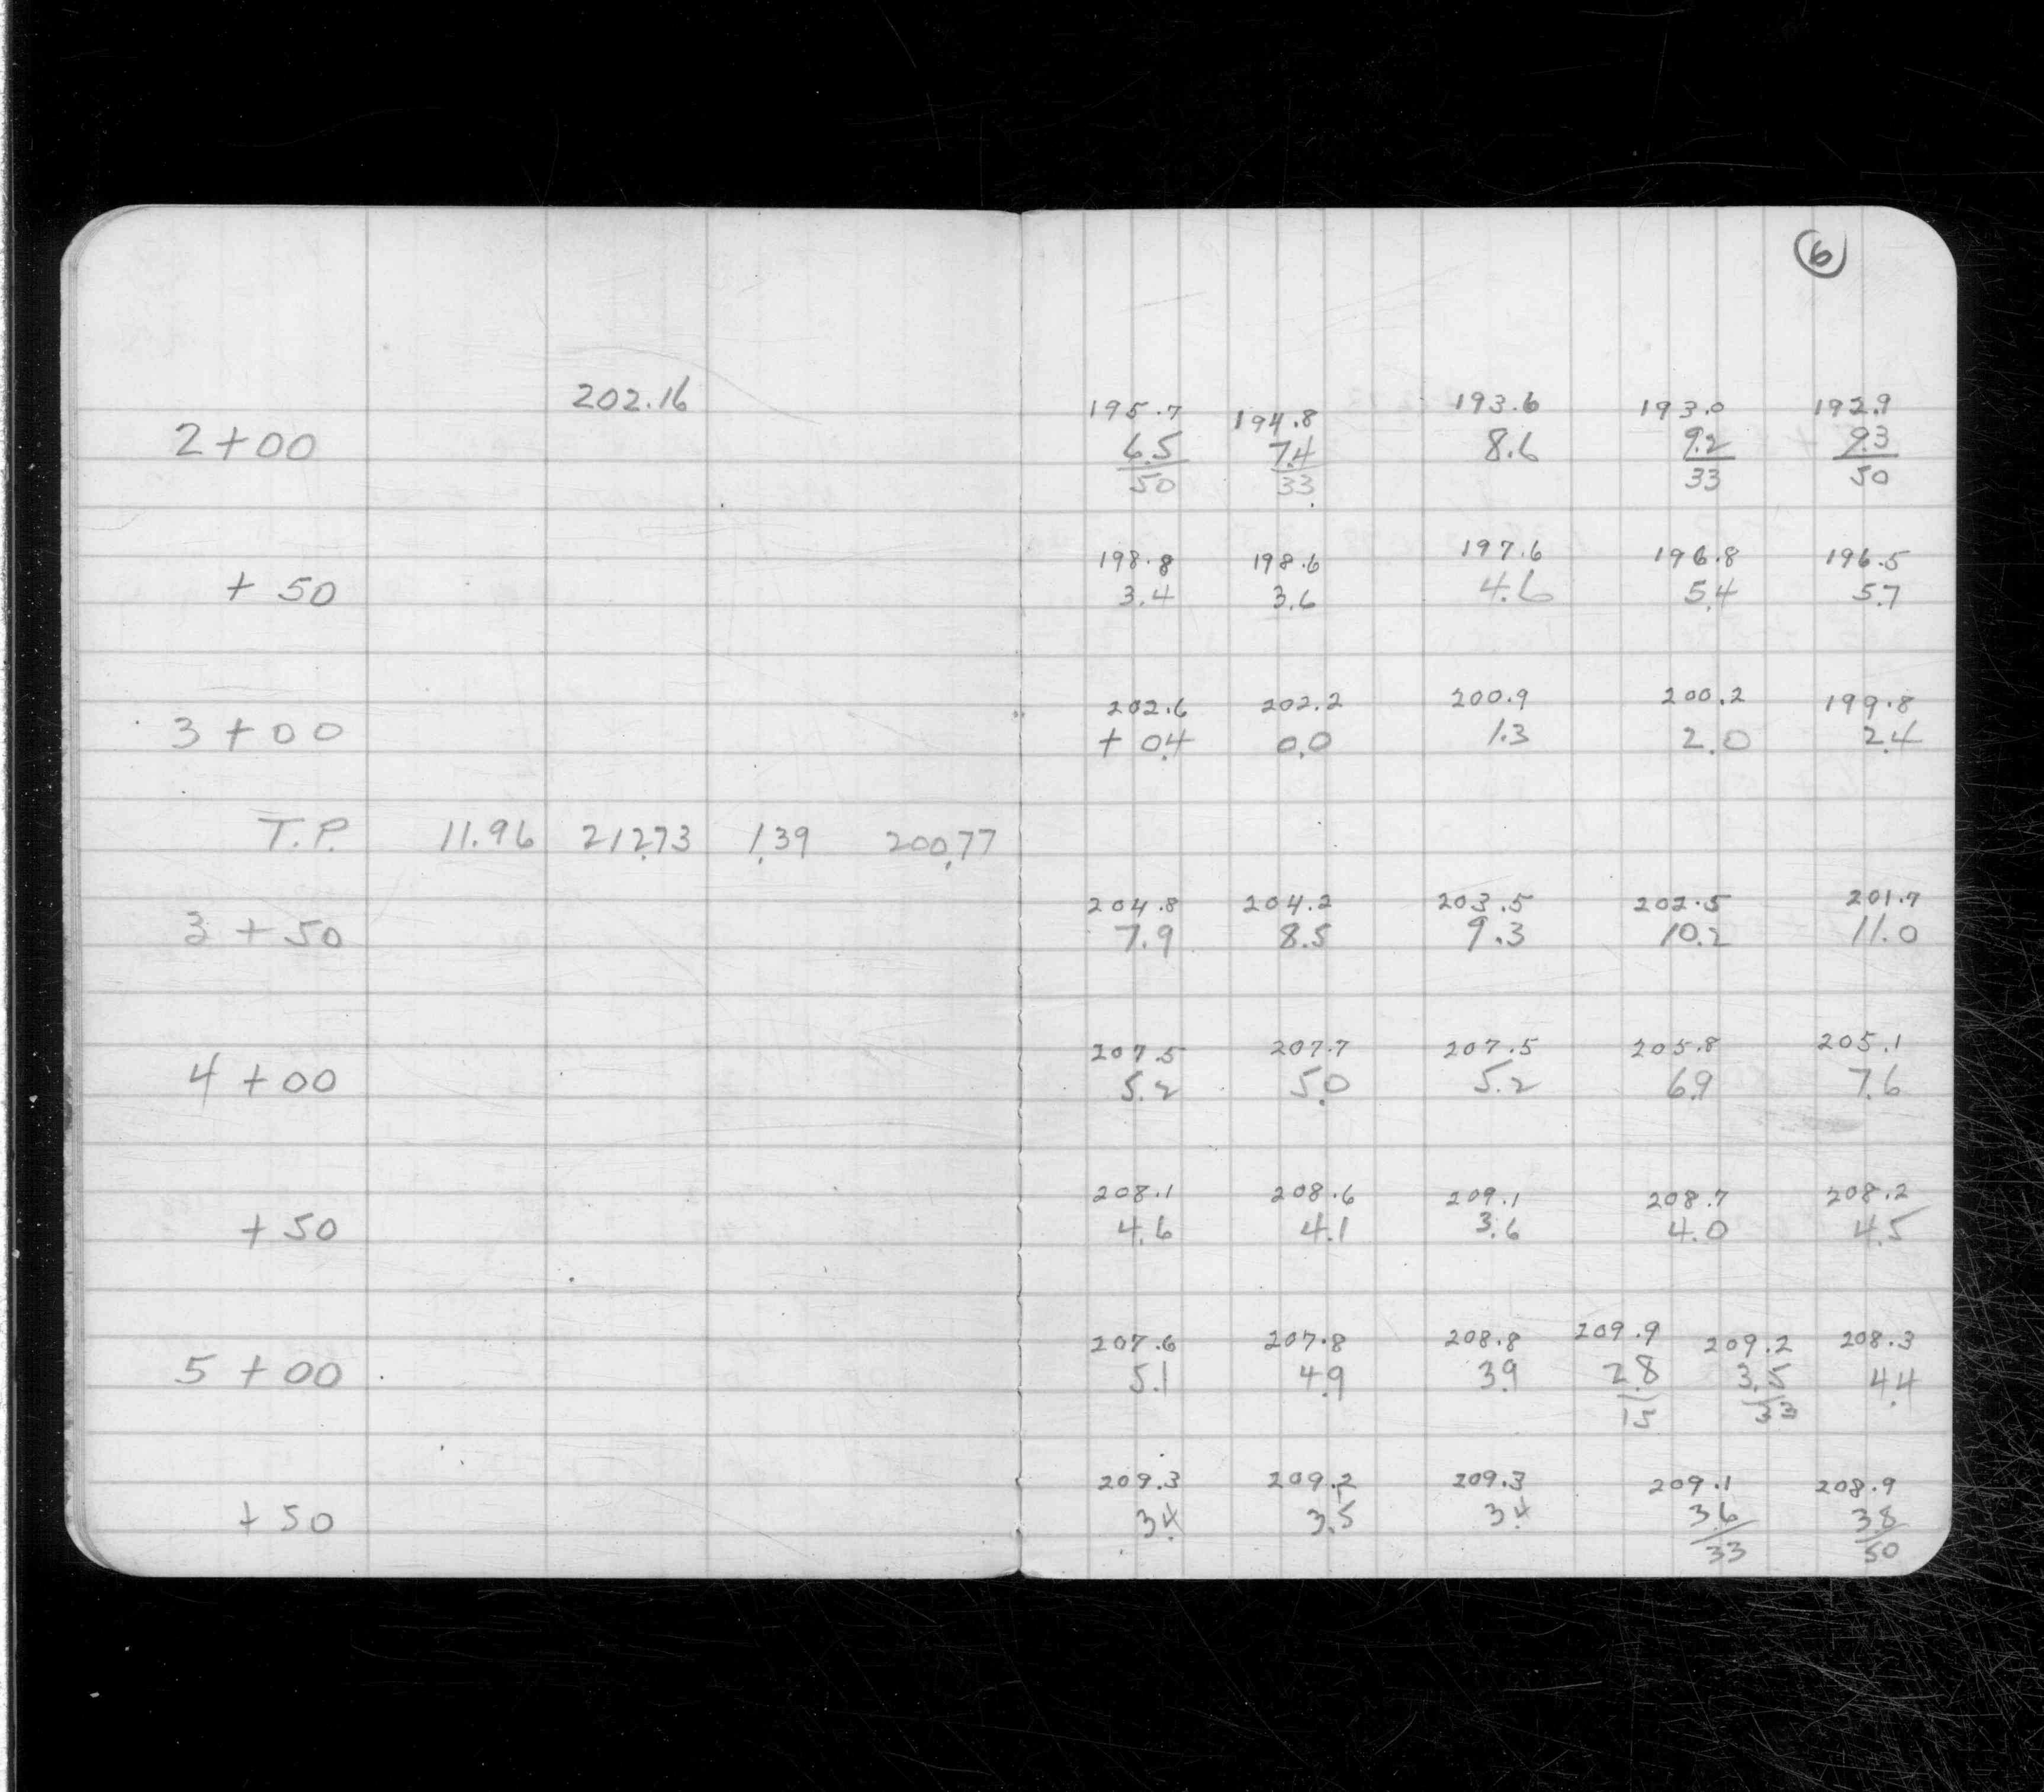 6
202.16
195.7 194.8 193.6 193.0 192.9
2+00 6.5 7.4 8.6 9.2 9.3
50 33 33 50
198.8 198.6 197.6 196.8 196.5
+ 50 3.4 3.6 4.6 5.4 5.7
202.6 202.2 200.9 200.2 199.8
3 + 00 + 0.4 0.0 1.3 2.0 2.4
T.P. 11.96 212.73 1.39 200.77
204.8 204.2 203.5 202.5 201.7
3 + 50 7.9 8.5 9.3 10.2 11.0
207.5 207.7 207.5 205.8 205.1
4 + 00 5.2 5.0 5.2 6.9 7.6
208.1 208.6 209.1 208.7 208.2
+ 50 4.6 4.1 3.6 4.0 4.5
207.6 207.8 208.8 209.9 209.2 208.3
5 + 00 5.1 4.9 3.9 2.8 3.5 4.4
15 33
209.3 209.2 209.3 209.1 208.9
+ 50 3.4 3.5 3.4 3.6 3.8
33 50